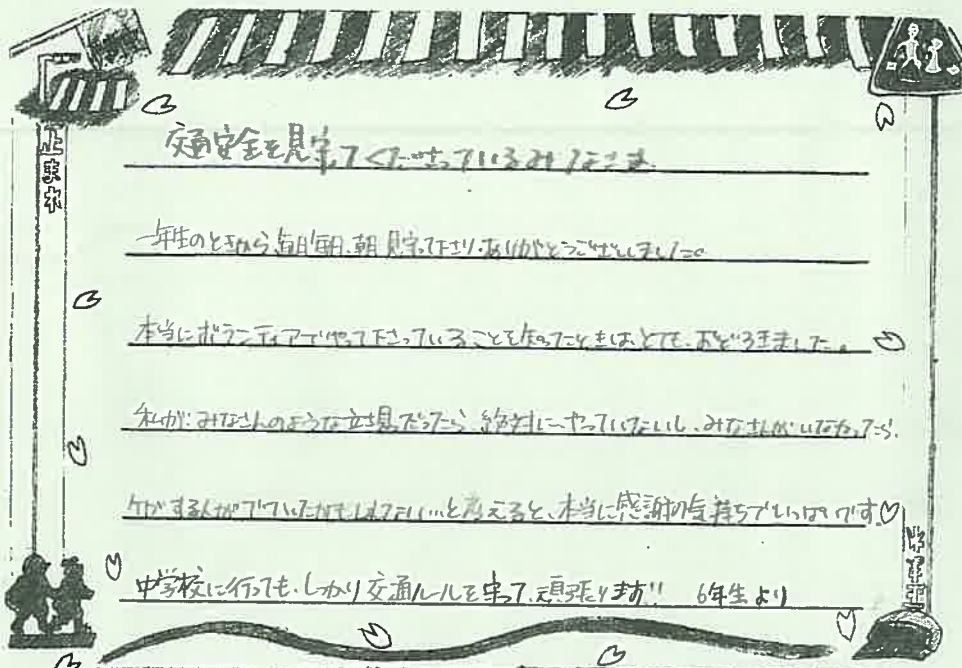 止まれ
交通安全を見守ってくださっているみなさま
一年生のときから毎日毎日、朝見守って下さり、ありがとうございました。
本当にボランティアでやって下さっていることを知ったときは、とても、おどろきました。
私が、みなさんのような立場だったら、絶対にやっていないし、みなさんがいなかったら、
ケガする人がでていたかもしれない…と考えると、本当に感謝の気持ちでいっぱいです♡
中学校に行っても、しっかり交通ルールを守って、頑張ります!! 6年生より